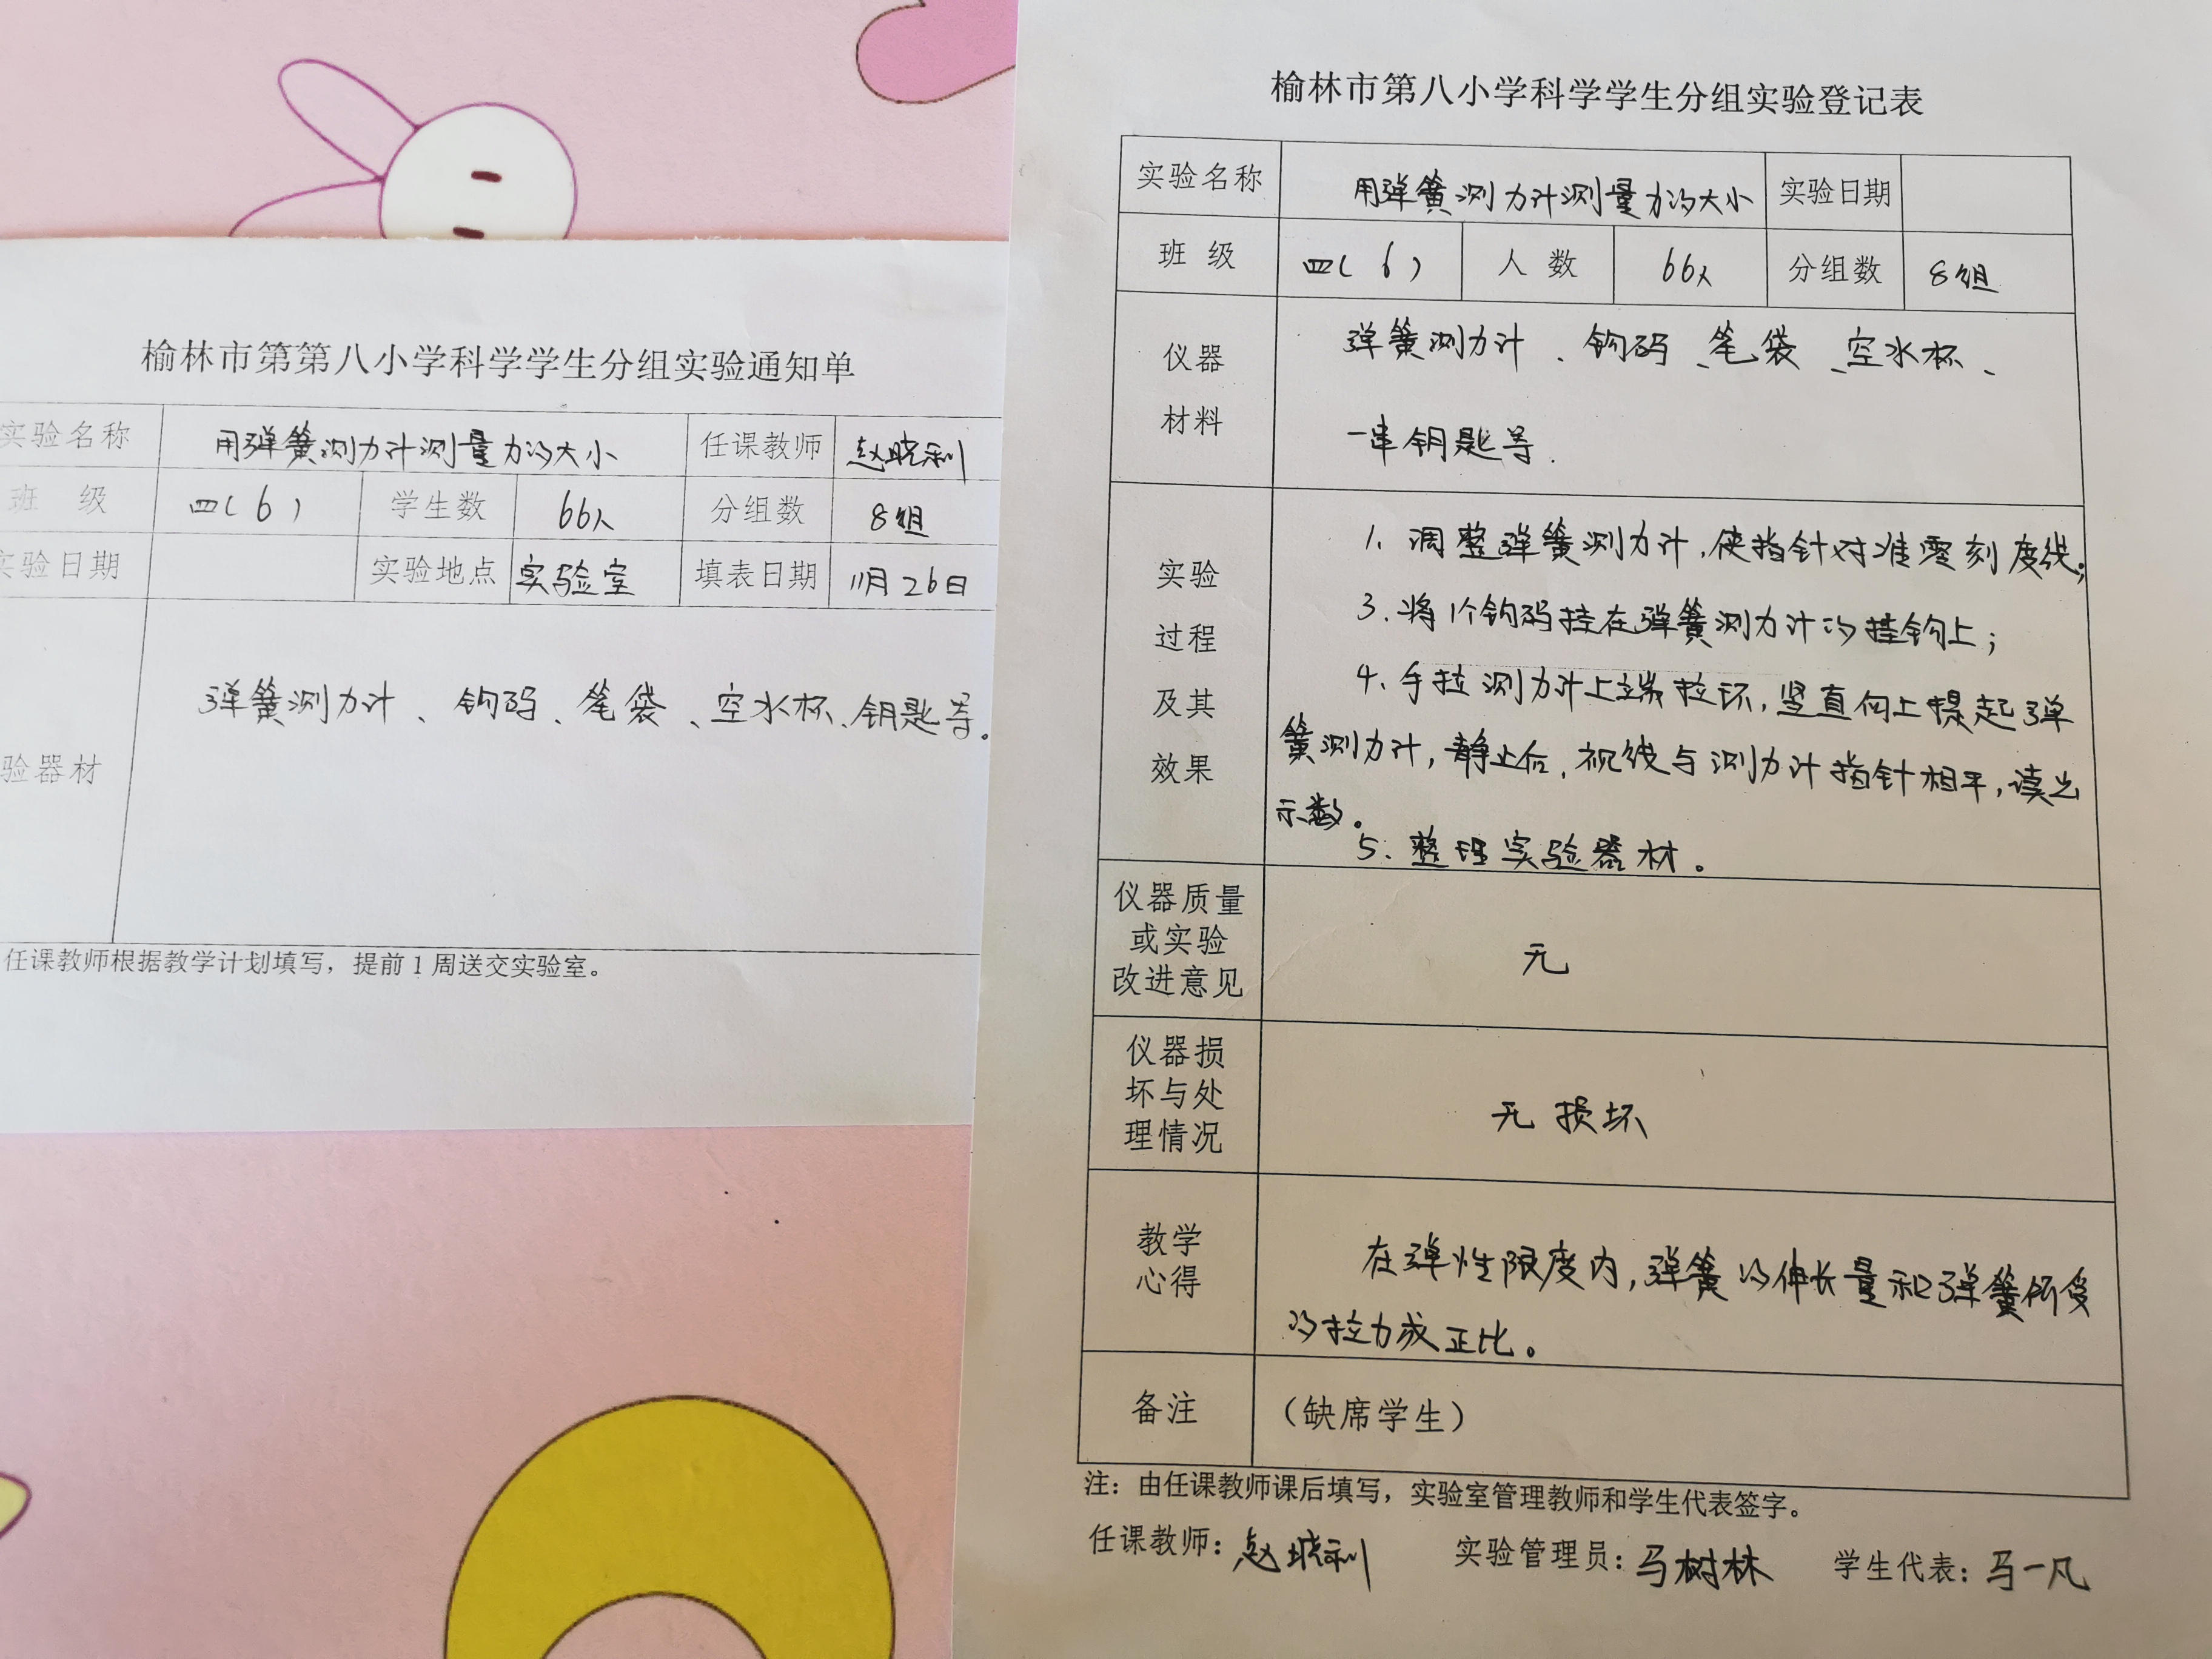 榆林市第第八小学科学学生分组实验通知单
实验名称 用弹簧测力计测量力的大小 任课教师 赵晓利
班 级 四(6) 学生数 66人 分组数 8组
实验日期 实验地点 实验室 填表日期 11月26日
验器材 弹簧测力计、钩码、笔袋、空水杯、钥匙等。
任课教师根据教学计划填写，提前1周送交实验室。
榆林市第八小学科学学生分组实验登记表
实验名称 用弹簧测力计测量力的大小 实验日期
班 级 四(6) 人 数 66人 分组数 8组
仪器
材料
弹簧测力计、钩码、笔袋、空水杯、
一串钥匙等.
实验
过程
及其
效果
1. 调整弹簧测力计,使指针对准零刻度线;
3. 将1个钩码挂在弹簧测力计的挂钩上;
4. 手拉测力计上端拉环,竖直向上提起弹
簧测力计,静止后,视线与测力计指针相平,读出
示数。
5. 整理实验器材。
仪器质量
或实验
改进意见
无
仪器损
坏与处
理情况
无损坏
教学
心得
在弹性限度内,弹簧的伸长量和弹簧所受
的拉力成正比。
备注 （缺席学生）
注：由任课教师课后填写，实验室管理教师和学生代表签字。
任课教师：赵晓利 实验管理员：马树林 学生代表：马一凡